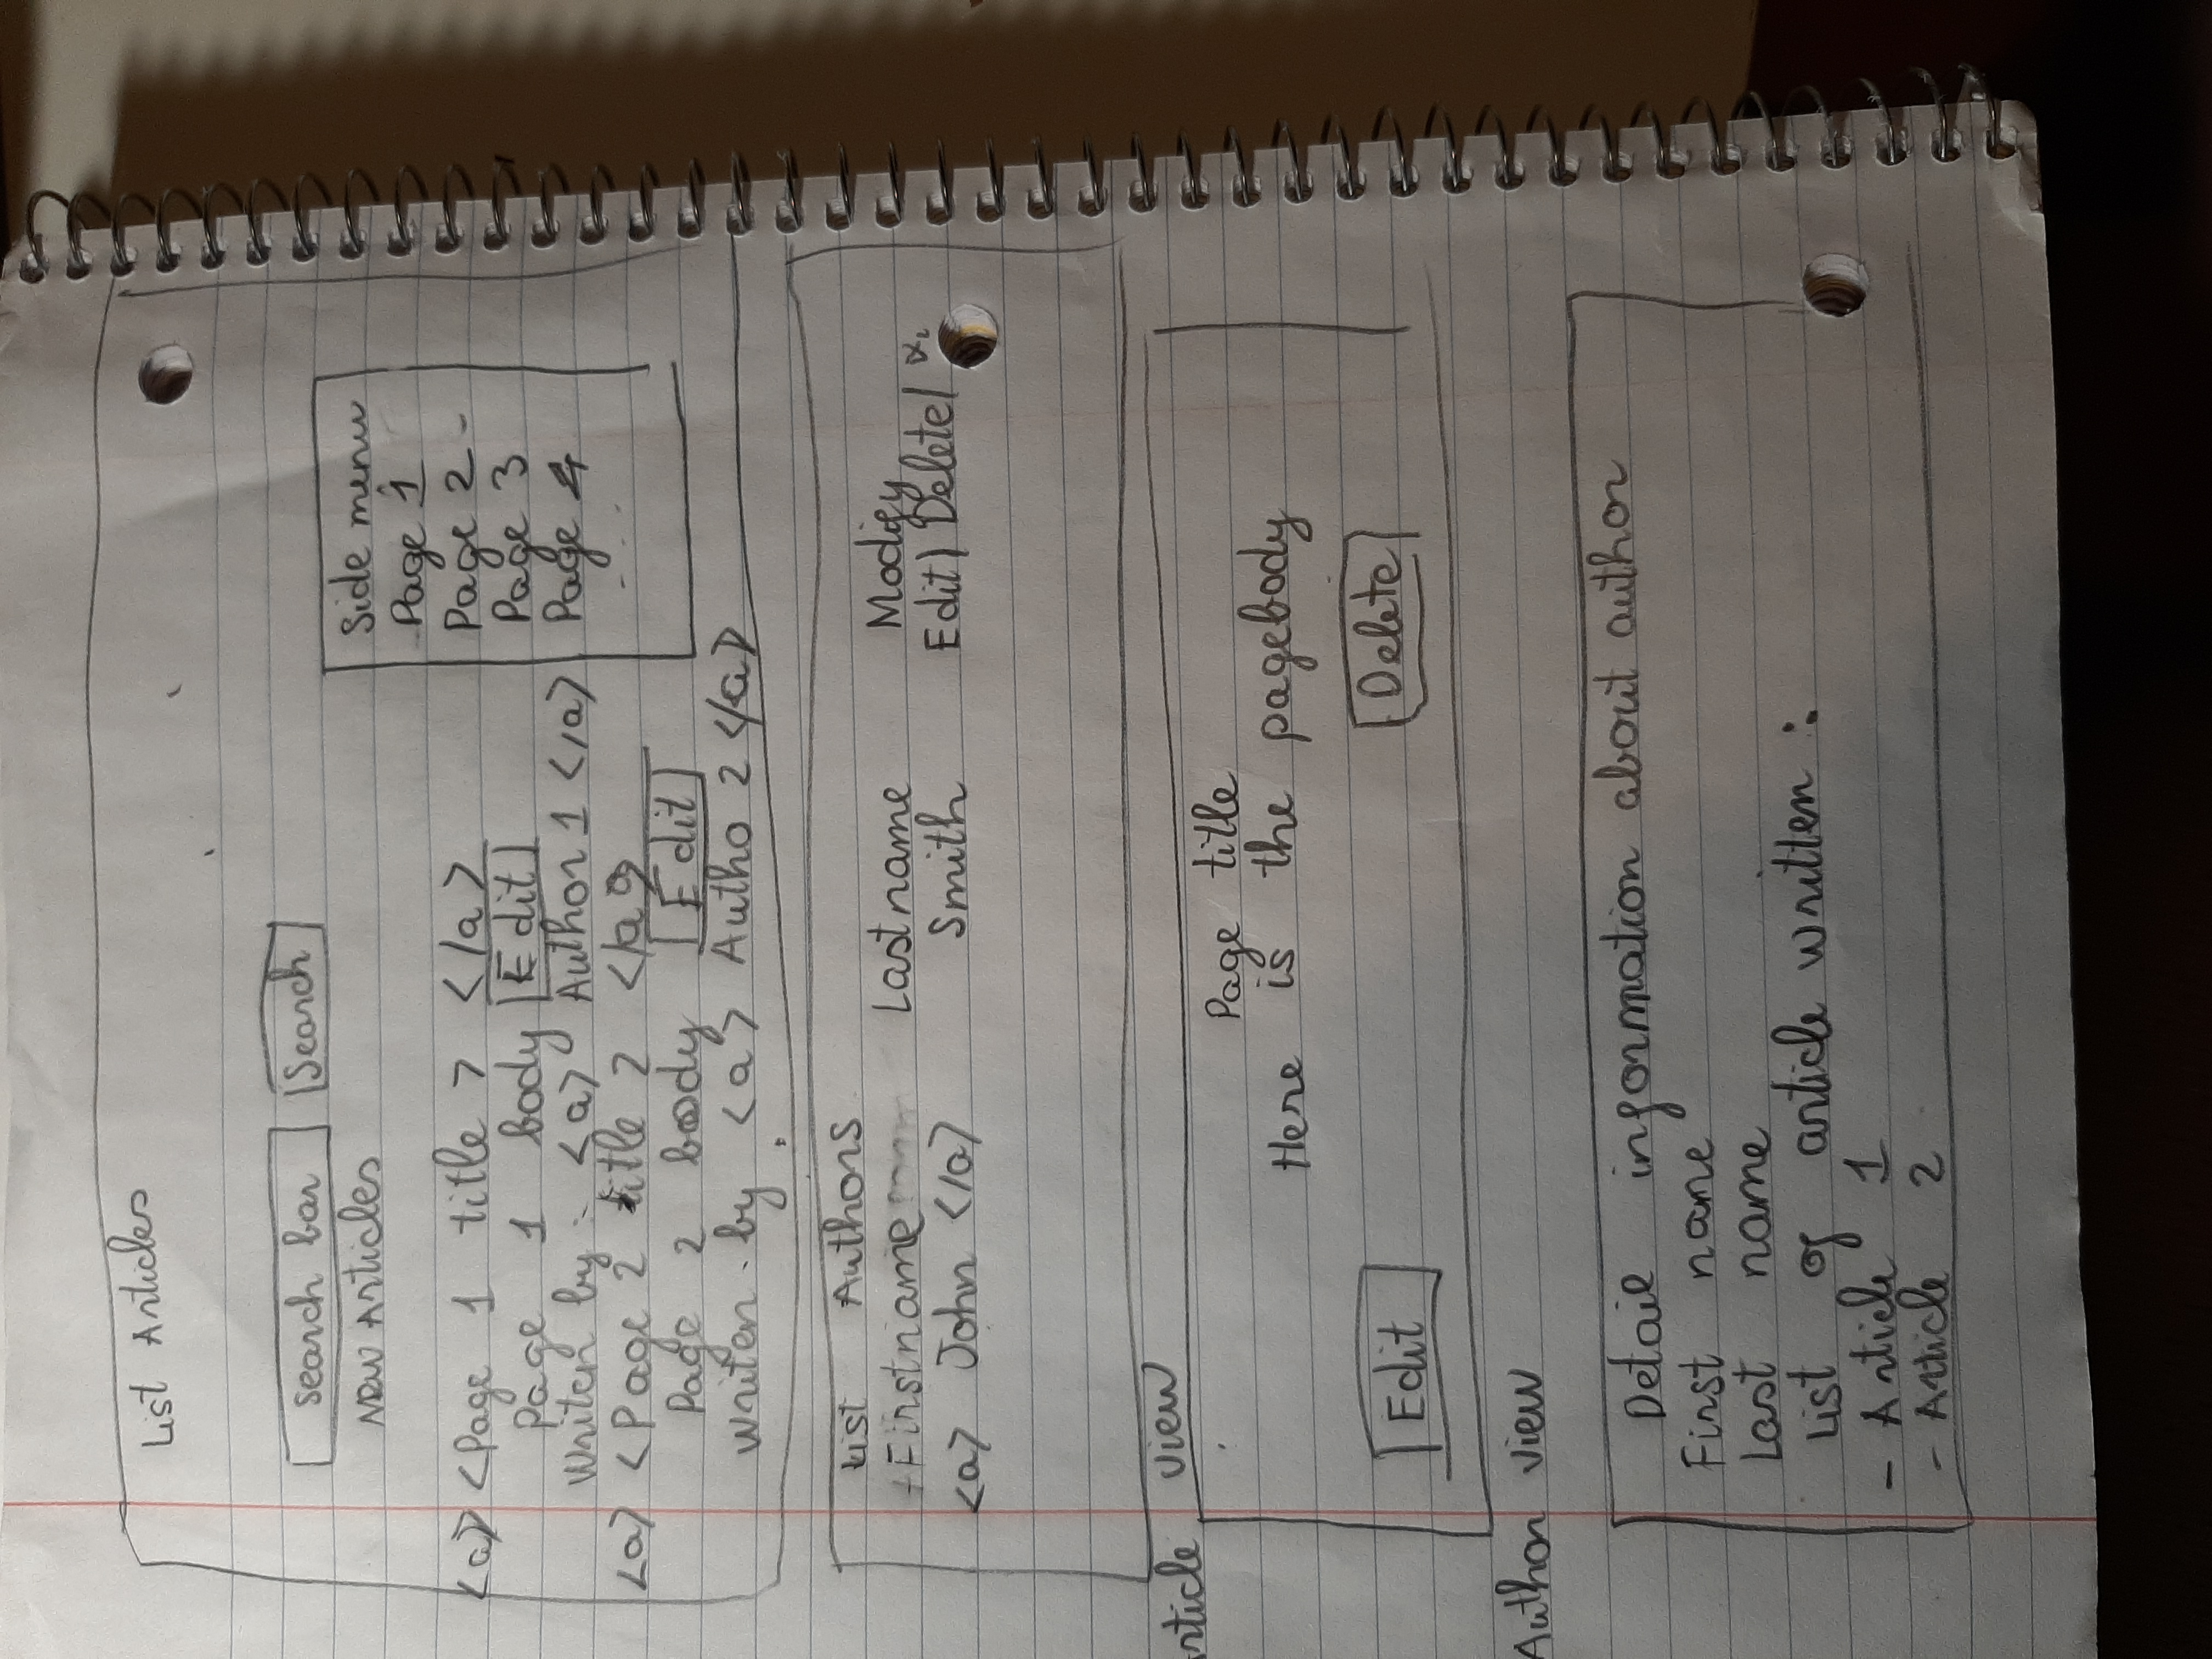 List Articles
search bar Search
New Articles
<a> <Page 1 title > </a>
Page 1 body Edit
Writen by : <a> Author 1 </a>
<a> <Page 2 title 2 </a>
Page 2 body Edit
writen by <a> Autho 2 </a>
Side menu
Page 1
Page 2 -
Page 3
Page 4
....
List Authors
Firstname Lastname Modify
<a> John </a> Smith Edit| Delete|
article view
Page title
Here is the pagebody
Edit Delete
Author view
Detail information about author
First name
Last name
List of article written :
- Article 1
- Article 2